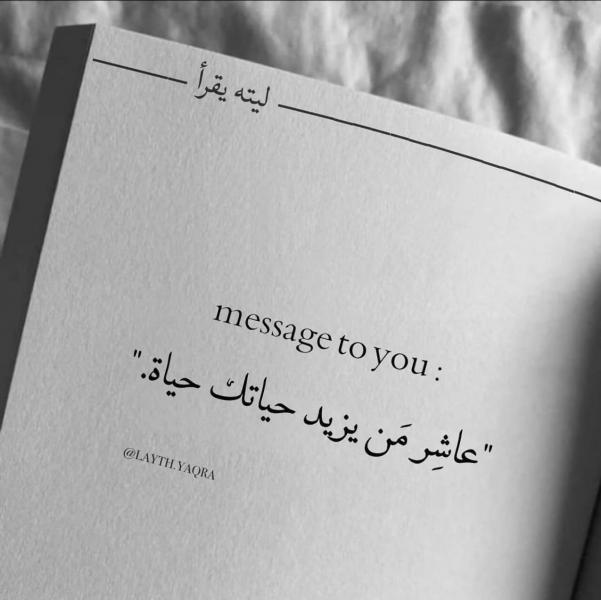 ليته يقرأ
message to you :
"عاشِر مَن يزيد حياتك حياة."
@LAYTH.YAQRA